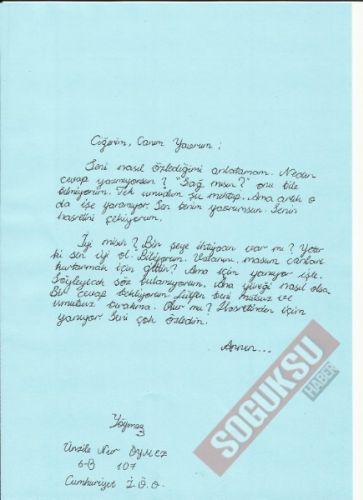 Ciğerim, Canım Yavrum ;
Seni nasıl özlediğimi anlatamam. Neden
cevap yazmıyorsun? "Sağ mısın?" onu bile
bilmiyorum. Tek umudum şu mektup. Ama artık o
da işe yaramıyor. Sen benim yavrumsun. Senin
hasretini çekiyorum.
İyi misin? Bir şeye ihtiyacın var mı? Yeter
ki sen iyi ol. Biliyorum. Vatanını, masum canları
kurtarmak için gittin? Ama içim yanıyor işte.
Söyleyecek söz bulamıyorum. Ana yüreği nasıl olsa.
Bir cevap bekliyorum. Lütfen beni mutsuz ve
umutsuz bırakma. Olur mu? Hasretinden içim
yanıyor. Seni çok özledim.
Annen...
Ünzile Nur
6-B 107
Cumhuriyet İ.Ö.O.
SOGUKSU
HABER